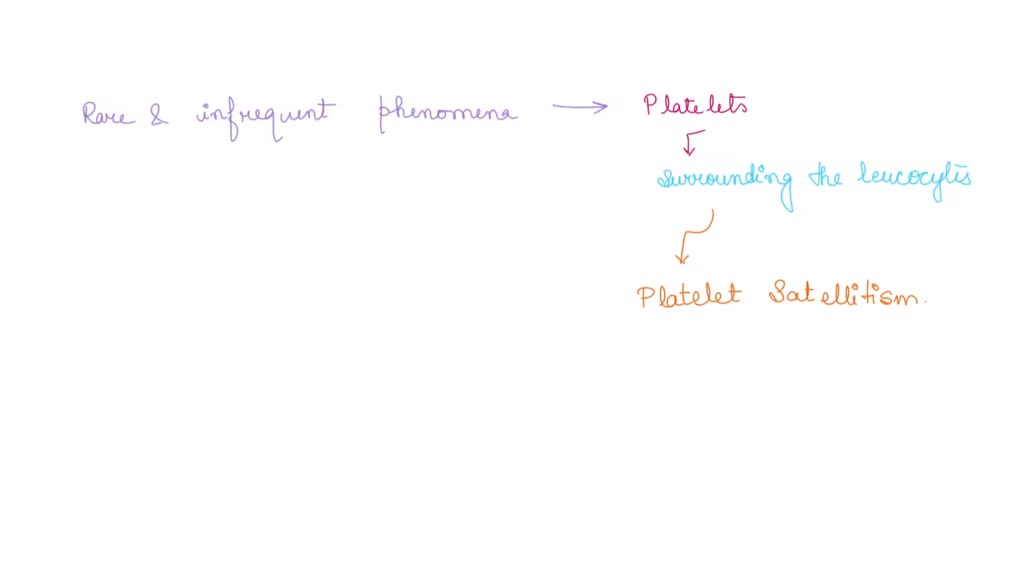 Rare & infrequent phenomena → Platelets
surrounding the leucocytes
Platelet Satellitism.